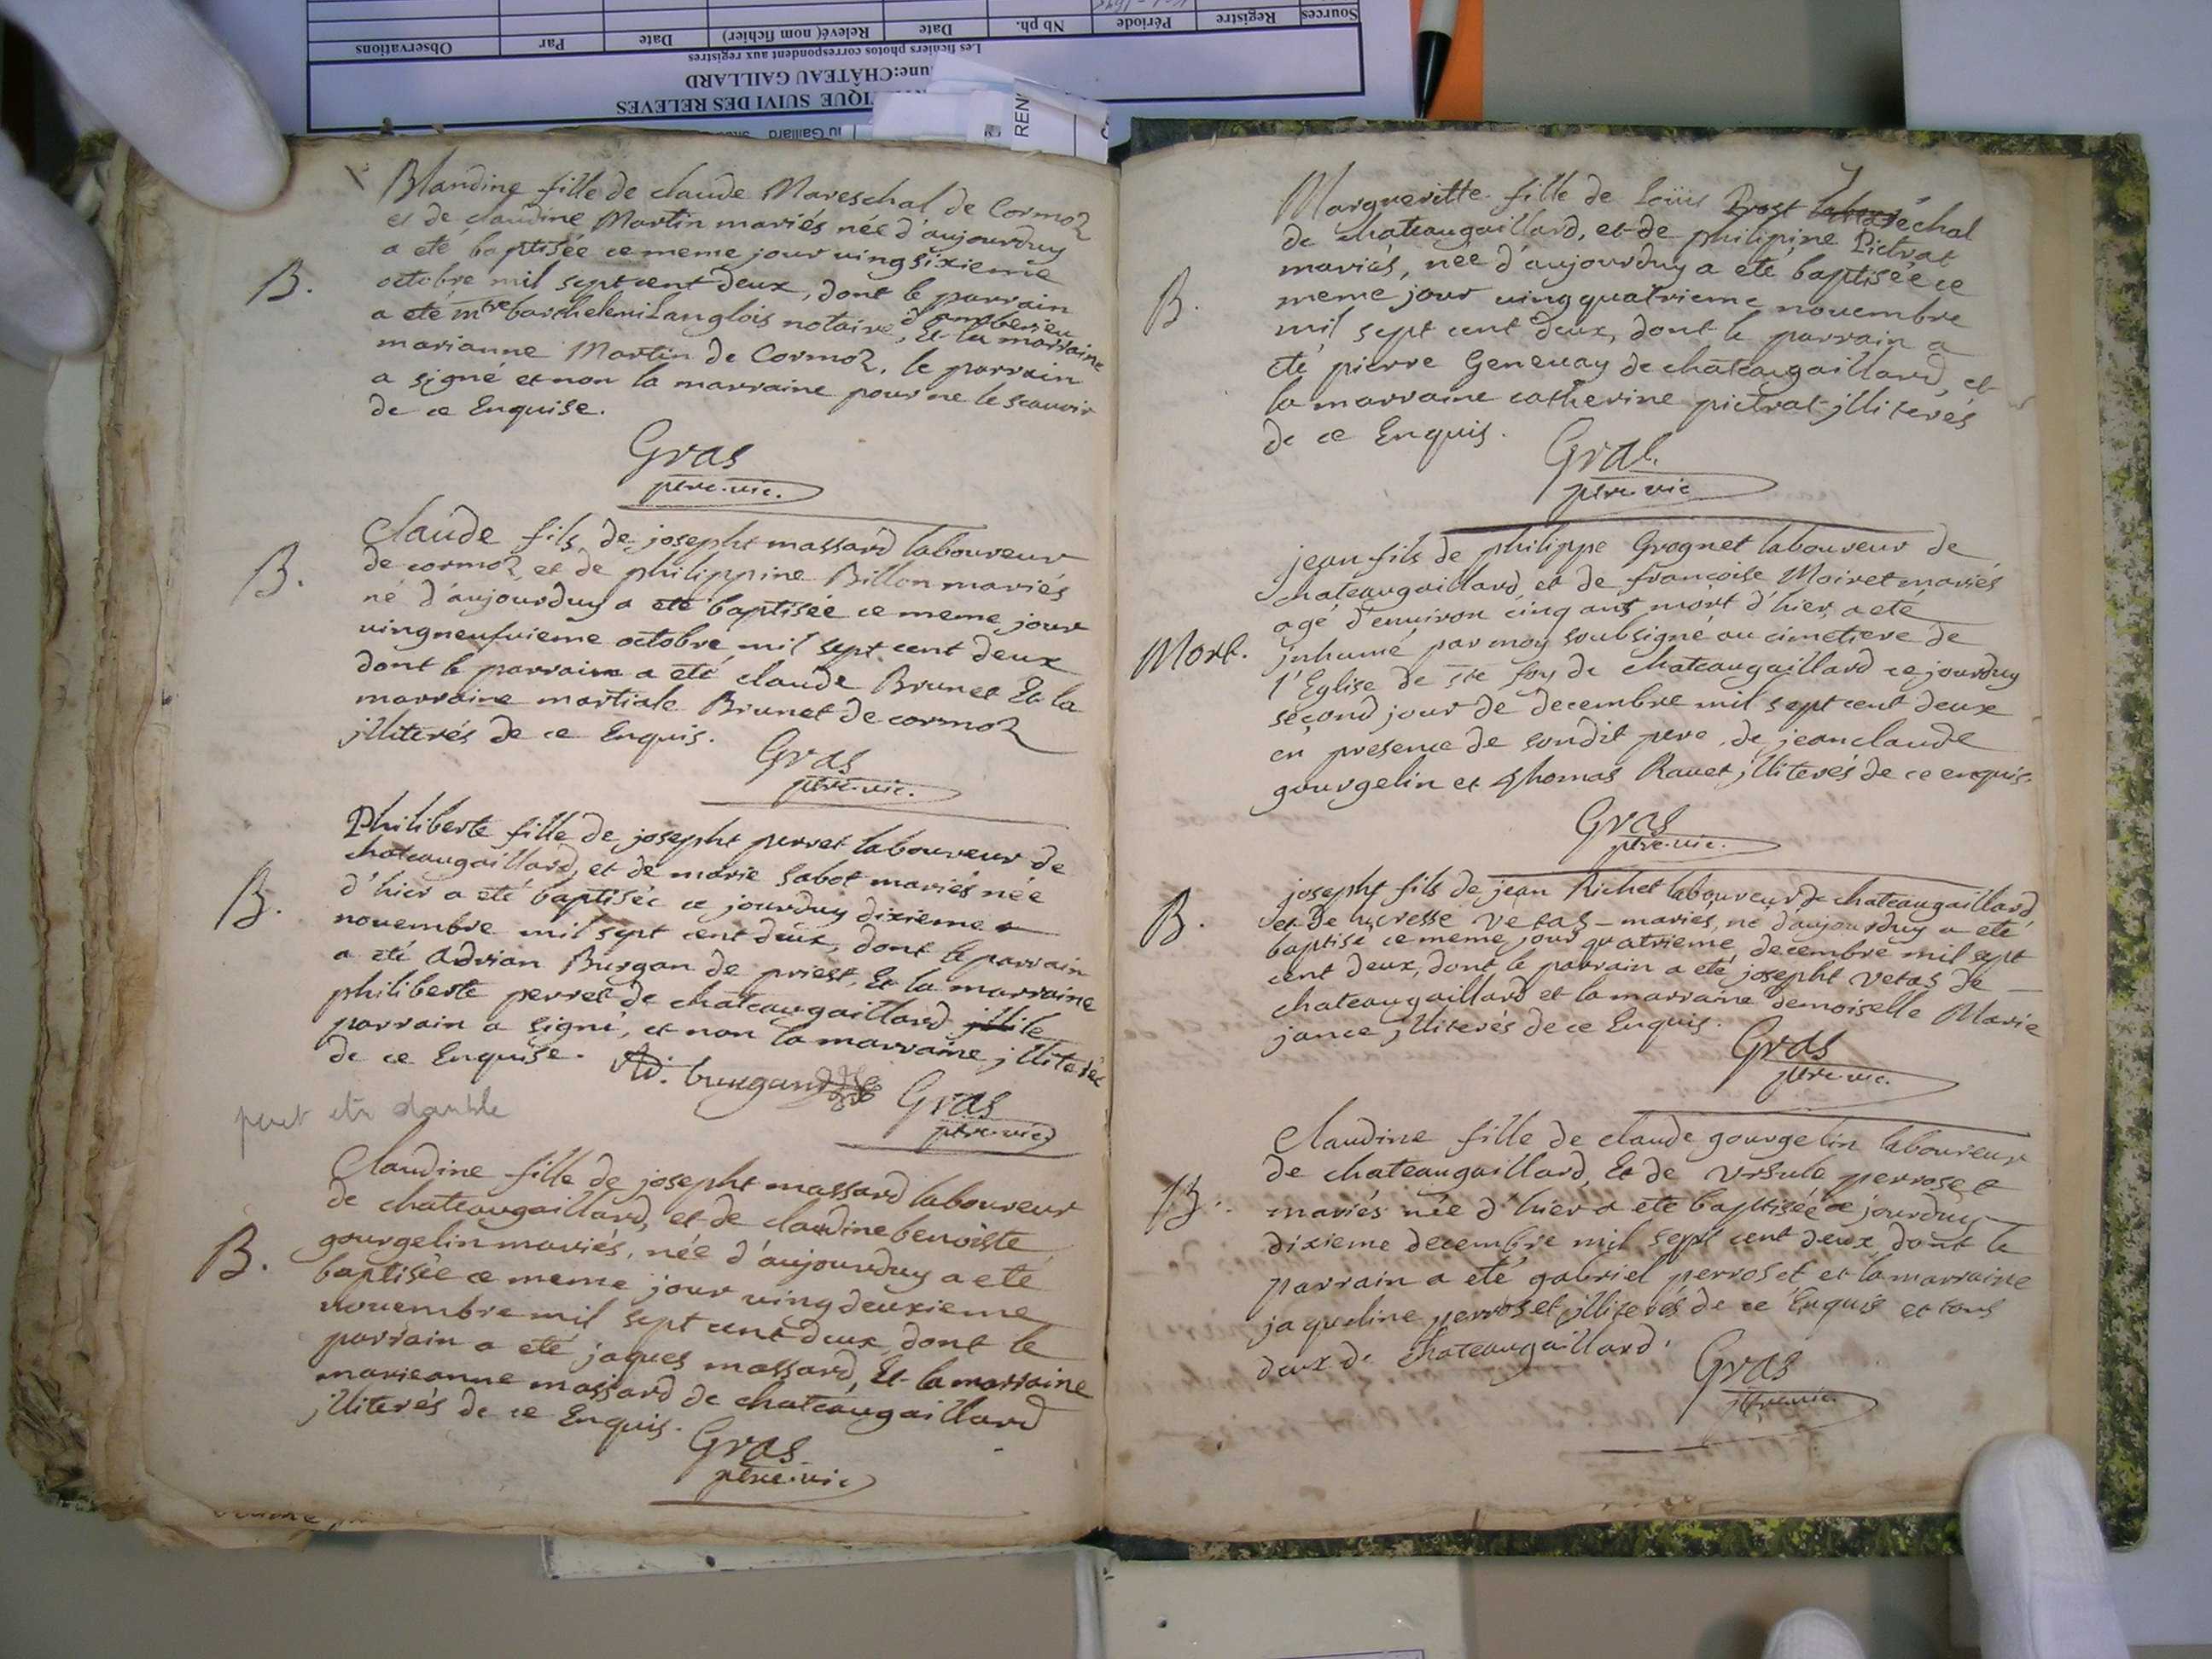 Sources Registre Période Nb ph. Date Relevé( nom fichier) Date Par Observations
Les fichiers photos correspondent aux registres
une:CHÂTEAU GAILLARD
IQUE SUIVI DES RELEVES
REN
Blandine fille de claude Mareschal de Cormoz
et de claudine Martin mariés née d'aujourduy
a eté baptisée ce meme jour vingsixieme
octobre mil sept cent deux, dont le parrain
B.
d'amberieu
a eté mtre barthelemi Langlois notaire, Et la marraine
marianne Martin de Cormoz, le parrain
a signé et non la marraine pour ne le scauoir
de ce Enquise.
Gras
pere.vic.
Claude fils de josepht massard laboureur
B.
de cormoz, et de philippine Billon mariés
né d'aujourduy a eté baptisée ce meme jour
vingneufuieme octobre mil sept cent deux
dont le parrain a eté claude Brunet Et la
marraine martiale Brunet de cormoz
jlliterés de ce Enquis.
Gras
pere.vic.
Philiberte fille de josepht perret laboureur de
chateaugaillard, et de marie Sabot mariés née
B.
d'hier a eté baptisée ce jourduy dixieme
nouembre mil sept cent deux, dont le parrain
a eté Adrian Burgan de priest, Et la marraine
philiberte perret de chateaugaillard jllile
parrain a signé, et non la marraine jlliterée
de ce Enquise.
AD. burgan
Gras
pere.vic.
peut etr double
Claudine fille de josepht massard laboureur
de chateaugaillard, et de claudine benoiste
B.
gourgelin mariés, née d'aujourduy a eté
baptisée ce meme jour vingdeuxieme
nouembre mil sept cent deux, dont le
parrain a eté jaques massard, Et la marraine
marieanne massard de chateaugaillard
jlliterés de ce Enquis.
Gras
pere.vic
7
Margueritte fille de Loüis Prost maréchal
de chateaugaillard, et de philipine Pietrat
mariés, née d'aujourduy a eté baptisée ce
B.
meme jour vingquatrieme nouembre
mil sept cent deux, dont le parrain a
eté pierre Geneuay de chateaugaillard, et
la marraine catherine pietrat jlliterés
de ce Enquis.
Gras.
pere.vic
jean fils de philippe Grognet laboureur de
chateaugaillard, et de françoise Moiret mariés
agé d'enuiron cinq ans mort d'hier, a eté
Mort.
jnhumé par moy soubsigné au cimetiere de
l'Eglise de ste foy de chateaugaillard ce jourduy
second jour de decembre mil sept cent deux
en presence de sondit pere, de jeanclaude
gourgelin et thomas Rauet, jlliterés de ce enquis.
Gras
pere.vic.
josepht fils de jean Richet laboureur de chateaugaillard
B.
et de lucresse Vetas - mariés, né d'aujourduy a eté
baptisé ce meme jour quatrieme decembre mil sept
cent deux, dont le parrain a eté josepht Vetas de
chateaugaillard et la marraine demoiselle Marie
jance, jlliterés de ce Enquis.
Gras
pere.vic.
Claudine fille de claude gourgelin laboureur
de chateaugaillard, Et de Vrsule perroset
B.
mariés née d'hier a eté baptisée ce jourduy
dixieme decembre mil sept cent deux, dont le
parrain a eté gabriel perroset et la marraine
jaqueline perroset jlliterés de ce Enquis et tous
deux de chateaugaillard.
Gras
pere.vic.